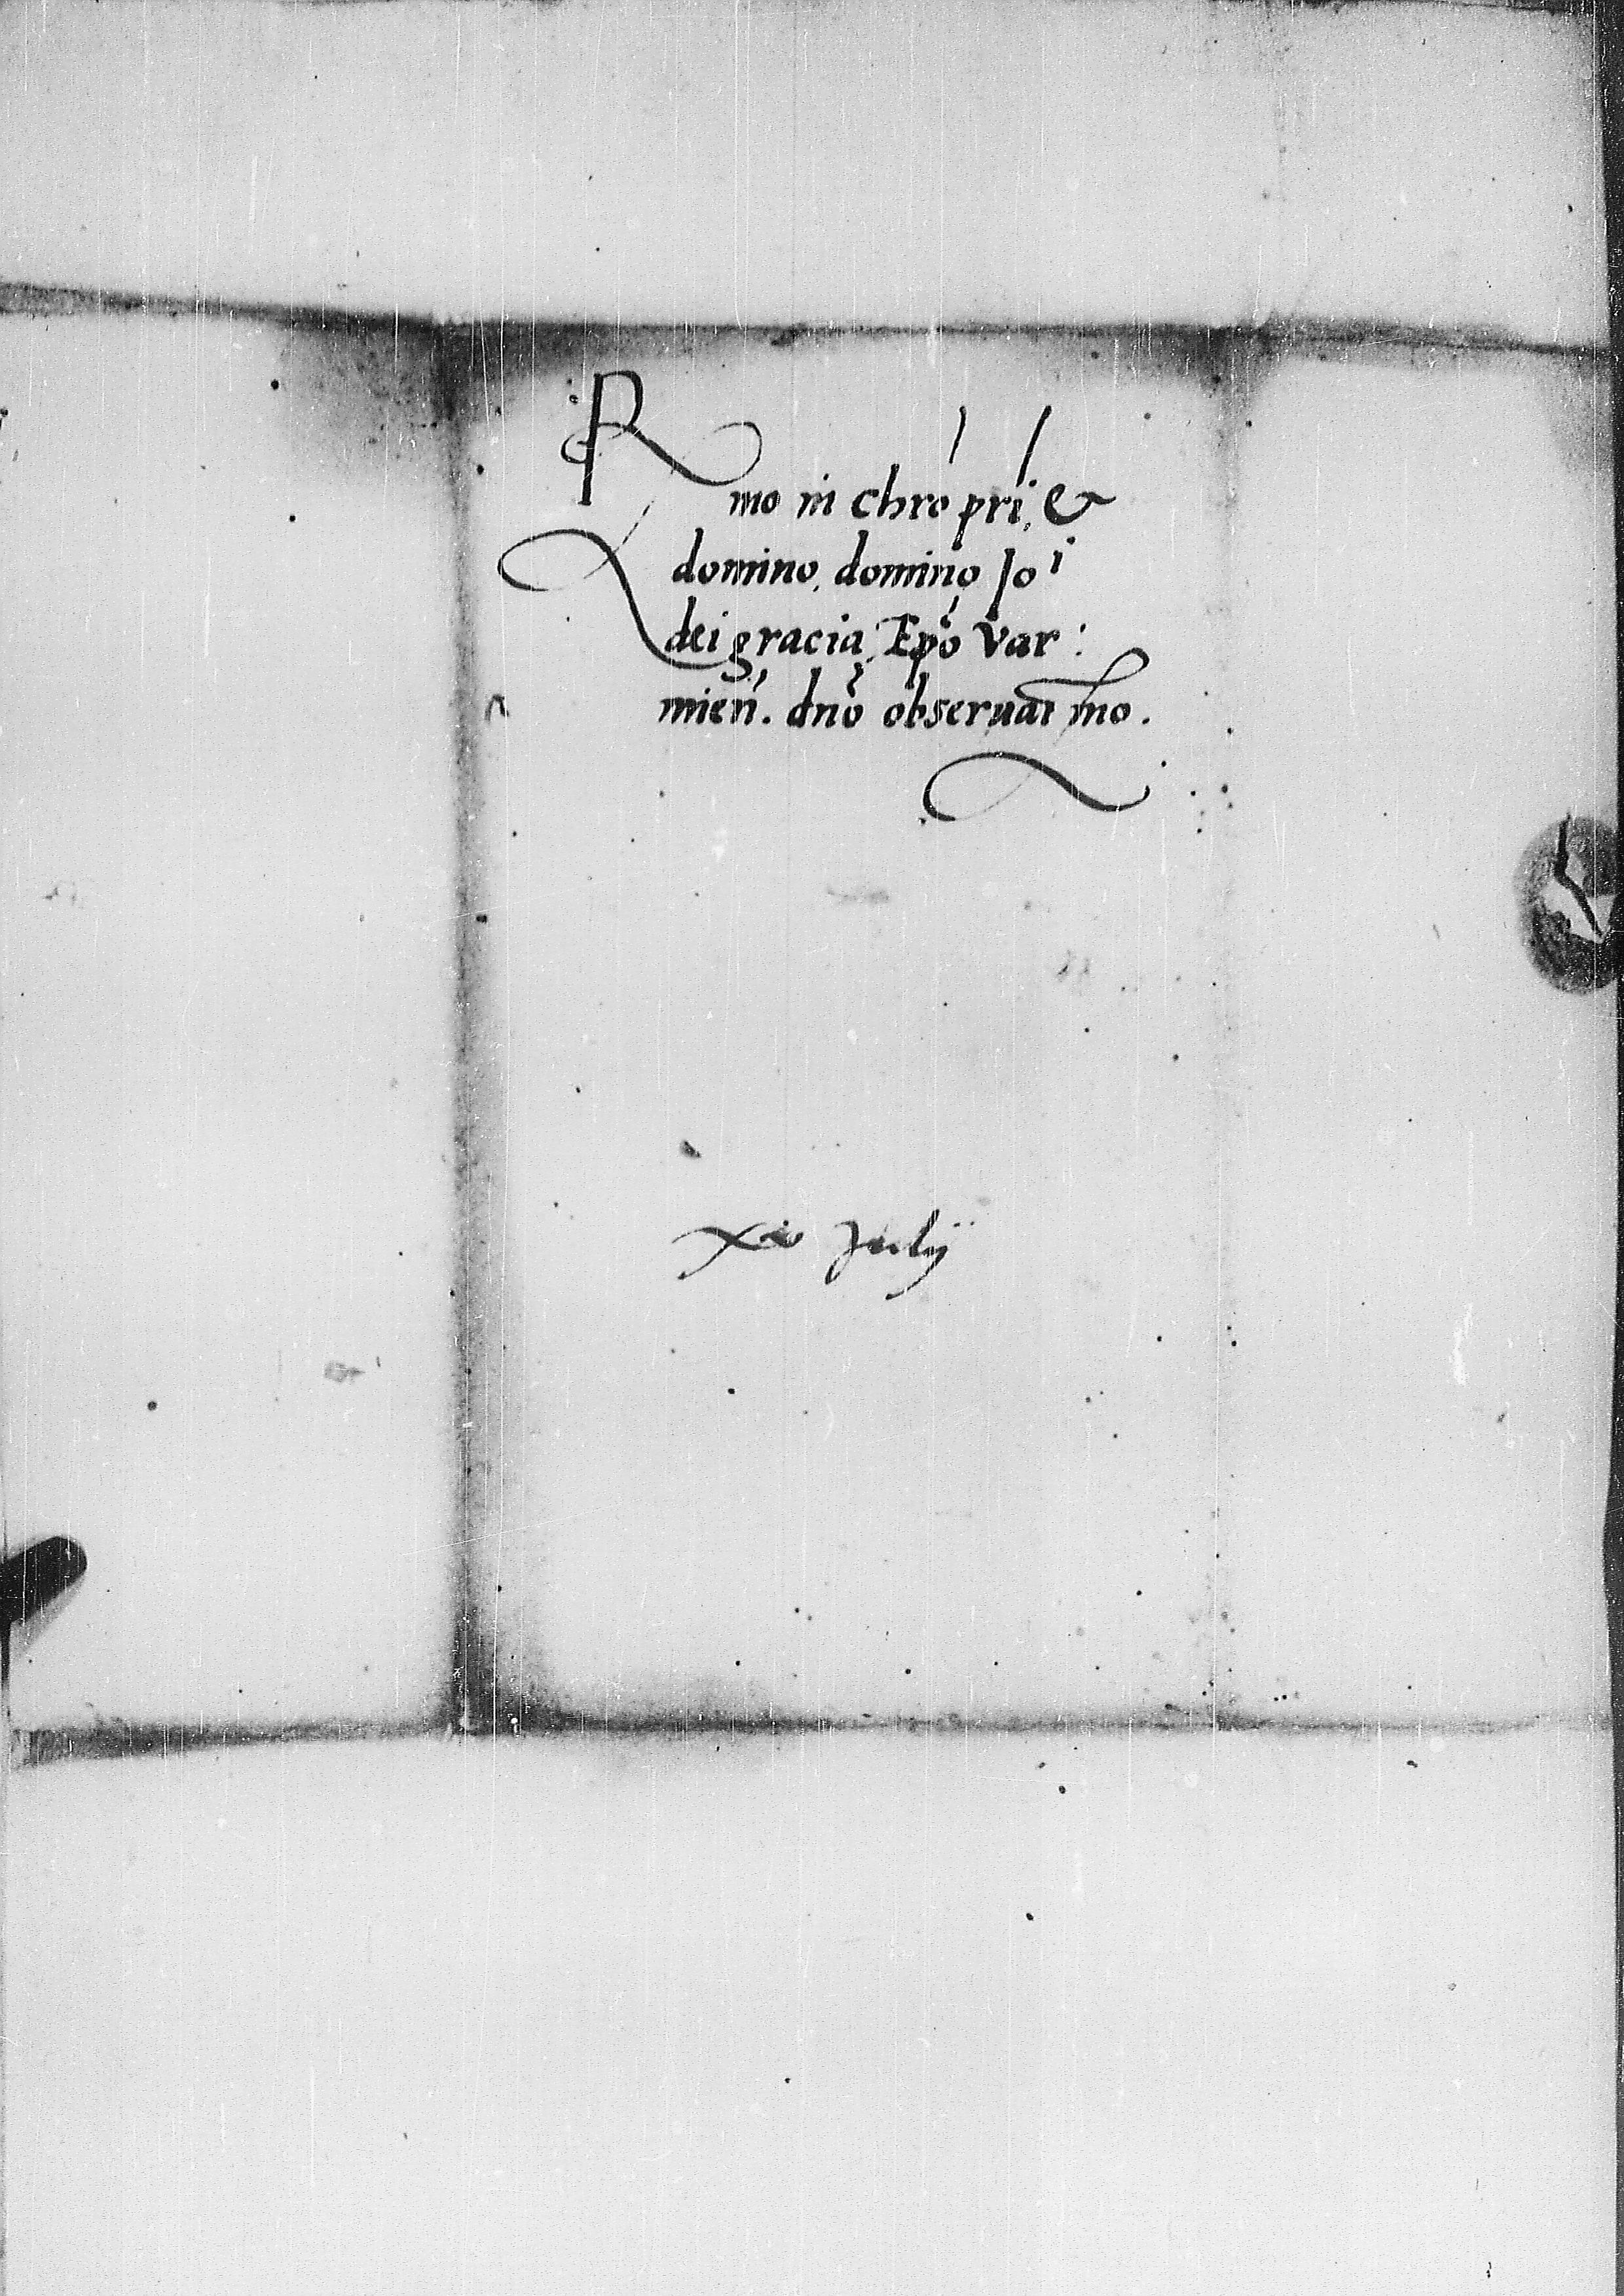 Rmo in chro pri, &
domino, domino Joi
dei gracia, Epo Var:
mien. dno obseruatmo.
July